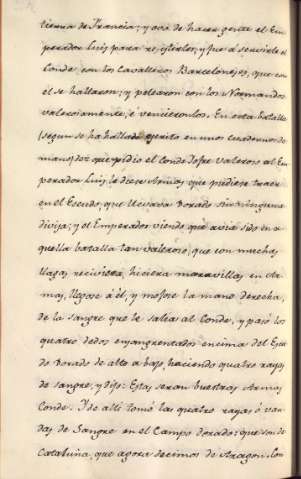 tierra de Francia; y avia de hacer gente el Em-
perador Luis para resistirles, y fue a servirle el
Conde con los Cavalleros Barceloneses, que con
él se hallaron; y pelearon con los Normandos
valerosamente, é vencieronlos. En esta batalla
(segun se ha hallado escrito en unos Cuadernos de
mano) dize que pidio el Conde Jofre Valeroso al Em-
perador Luis, le diese Armas que pudiese traer
en el Escudo, que llevaba dorado sin ninguna
divisa; y el Emperador viendo que avia sido en a-
quella batalla tan valeroso, que con muchas
llagas reciviera, hiciera maravillas en Ar-
mas, llegose á él, y mojose la mano derecha,
de la sangre que le salia al Conde, y pasó los
quatro dedos ensangrentados encima del Escu-
do dorado de alto a bajo, haciendo quatro rayas
de sangre, y dijo: Estas seran buestras Armas
Conde. Y de alli tomó las quatro rayas ó van-
das de Sangre en el Campo dorado: que son de
Cataluña, que agora decimos de Aragon. Con